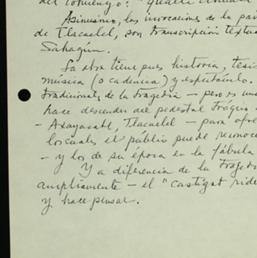 del comienzo: "
Asimismo, las invocaciones de la pa
de Tlacaelel, son transcripción textua
Sahagún.
La obra tiene pues historia, tesis
música (o cadencia) y espectáculo.
tradicional de la tragedia — pero es un
hace descender del pedestal trágico
- Axayacatl, Tlacaelel - para ofre
los cuales el público puede reconoce
- y los de su época en la fábula
Y a diferencia de la tragedia
ampliamente - el "castigat ride
y hace pensar.